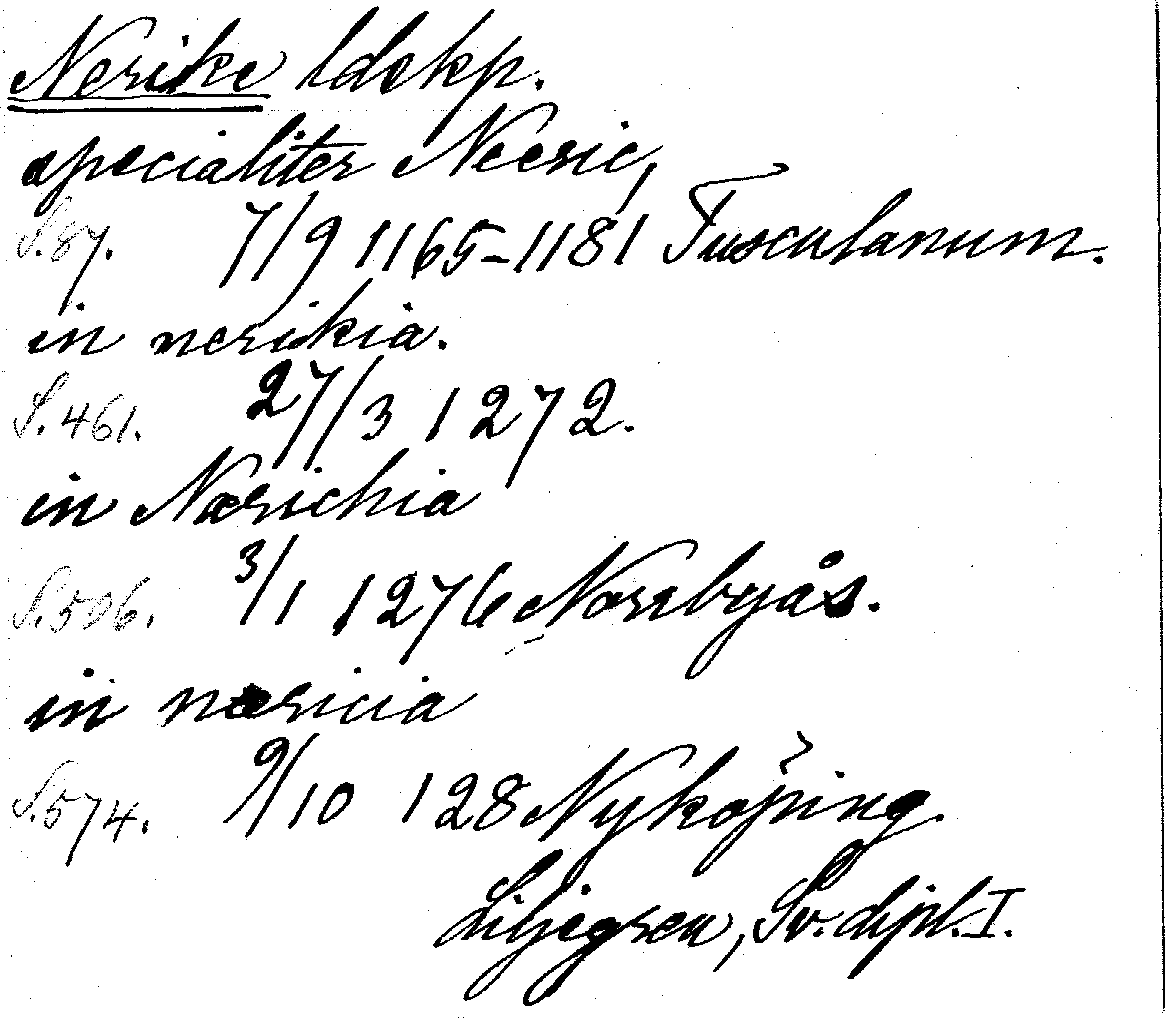 Nerike ldskp.
specialiter Neeric,
S.87. 7/9 1165-1181 Tusculanum.
in nerikia.
S.461. 27/3 1272.
in Nærichia
S.506. 3/1 1276 Norrbyås.
in næricia
S.574. 9/10 128 Nyköping.
Liljegren, Sv. dipl. I.